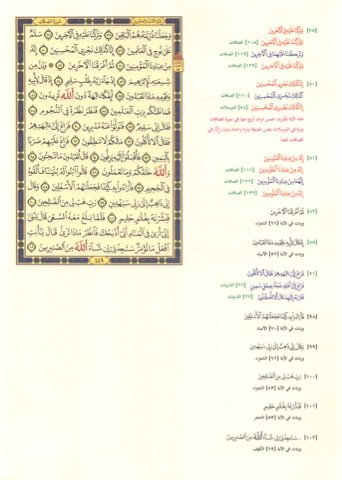 وَجَعَلْنَا ذُرِّيَّتَهُ هُمُ الْبَاقِينَ ۝ وَتَرَكْنَا عَلَيْهِ فِي الْآخِرِينَ ۝ سَلَامٌ
عَلَى نُوحٍ فِي الْعَالَمِينَ ۝ إِنَّا كَذَلِكَ نَجْزِي الْمُحْسِنِينَ ۝ إِنَّهُ
مِنْ عِبَادِنَا الْمُؤْمِنِينَ ۝ ثُمَّ أَغْرَقْنَا الْآخَرِينَ ۝ وَإِنَّ مِن
شِيعَتِهِ لَإِبْرَاهِيمَ ۝ إِذْ جَاءَ رَبَّهُ بِقَلْبٍ سَلِيمٍ ۝ إِذْ قَالَ لِأَبِيهِ
وَقَوْمِهِ مَاذَا تَعْبُدُونَ ۝ أَئِفْكًا آلِهَةً دُونَ اللَّهِ تُرِيدُونَ ۝
فَمَا ظَنُّكُم بِرَبِّ الْعَالَمِينَ ۝ فَنَظَرَ نَظْرَةً فِي النُّجُومِ ۝
فَقَالَ إِنِّي سَقِيمٌ ۝ فَتَوَلَّوْا عَنْهُ مُدْبِرِينَ ۝ فَرَاغَ إِلَى آلِهَتِهِمْ
فَقَالَ أَلَا تَأْكُلُونَ ۝ مَا لَكُمْ لَا تَنطِقُونَ ۝ فَرَاغَ عَلَيْهِمْ ضَرْبًا
بِالْيَمِينِ ۝ فَأَقْبَلُوا إِلَيْهِ يَزِفُّونَ ۝ قَالَ أَتَعْبُدُونَ مَا تَنْحِتُونَ ۝
وَاللَّهُ خَلَقَكُمْ وَمَا تَعْمَلُونَ ۝ قَالُوا ابْنُوا لَهُ بُنْيَانًا فَأَلْقُوهُ
فِي الْجَحِيمِ ۝ فَأَرَادُوا بِهِ كَيْدًا فَجَعَلْنَاهُمُ الْأَسْفَلِينَ ۝ وَقَالَ
إِنِّي ذَاهِبٌ إِلَى رَبِّي سَيَهْدِينِ ۝ رَبِّ هَبْ لِي مِنَ الصَّالِحِينَ ۝
فَبَشَّرْنَاهُ بِغُلَامٍ حَلِيمٍ ۝ فَلَمَّا بَلَغَ مَعَهُ السَّعْيَ قَالَ يَا بُنَيَّ
إِنِّي أَرَى فِي الْمَنَامِ أَنِّي أَذْبَحُكَ فَانظُرْ مَاذَا تَرَى قَالَ يَا أَبَتِ
افْعَلْ مَا تُؤْمَرُ سَتَجِدُنِي إِن شَاءَ اللَّهُ مِنَ الصَّابِرِينَ ۝
٤٤٩
(٧٨) وَتَرَكْنَا عَلَيْهِ فِي الْآخِرِينَ
وَتَرَكْنَا عَلَيْهِ فِي الْآخِرِينَ [١٠٨] الصافات
وَتَرَكْنَا عَلَيْهِمَا فِي الْآخِرِينَ [١١٩] الصافات
وَتَرَكْنَا عَلَيْهِ فِي الْآخِرِينَ [١٢٩] الصافات
(٨٠) إِنَّا كَذَلِكَ نَجْزِي الْمُحْسِنِينَ
كَذَلِكَ نَجْزِي الْمُحْسِنِينَ [١١٠] الصافات
إِنَّا كَذَلِكَ نَجْزِي الْمُحْسِنِينَ [٤٤] المرسلات
(٨١) إِنَّهُ مِنْ عِبَادِنَا الْمُؤْمِنِينَ
إِنَّهُ مِنْ عِبَادِنَا الْمُؤْمِنِينَ [١١١] الصافات
إِنَّهُمَا مِنْ عِبَادِنَا الْمُؤْمِنِينَ [١٢٢] الصافات
إِنَّهُ مِنْ عِبَادِنَا الْمُؤْمِنِينَ [١٣٢] الصافات
(٨٢) ثُمَّ أَغْرَقْنَا الْآخَرِينَ
وردت في الآية [٦٦] الشعراء
(٨٥) إِذْ قَالَ لِأَبِيهِ وَقَوْمِهِ مَاذَا تَعْبُدُونَ
(٩١) فَرَاغَ إِلَى آلِهَتِهِمْ فَقَالَ أَلَا تَأْكُلُونَ
فَرَاغَ إِلَى أَهْلِهِ فَجَاءَ بِعِجْلٍ سَمِينٍ [٢٦] الذاريات
فَقَرَّبَهُ إِلَيْهِمْ قَالَ أَلَا تَأْكُلُونَ [٢٧] الذاريات
(٩٨) فَأَرَادُوا بِهِ كَيْدًا فَجَعَلْنَاهُمُ الْأَسْفَلِينَ
وردت في الآية [٧٠] الأنبياء
(٩٩) وَقَالَ إِنِّي ذَاهِبٌ إِلَى رَبِّي سَيَهْدِينِ
وردت في الآية [٦٢] الشعراء
(١٠٠) رَبِّ هَبْ لِي مِنَ الصَّالِحِينَ
وردت في الآية [٨٣] الشعراء
(١٠١) فَبَشَّرْنَاهُ بِغُلَامٍ حَلِيمٍ
وردت في الآية [٥٣] الحجر
(١٠٢) ... سَتَجِدُنِي إِن شَاءَ اللَّهُ مِنَ الصَّابِرِينَ
وردت في الآية [٦٩] الكهف